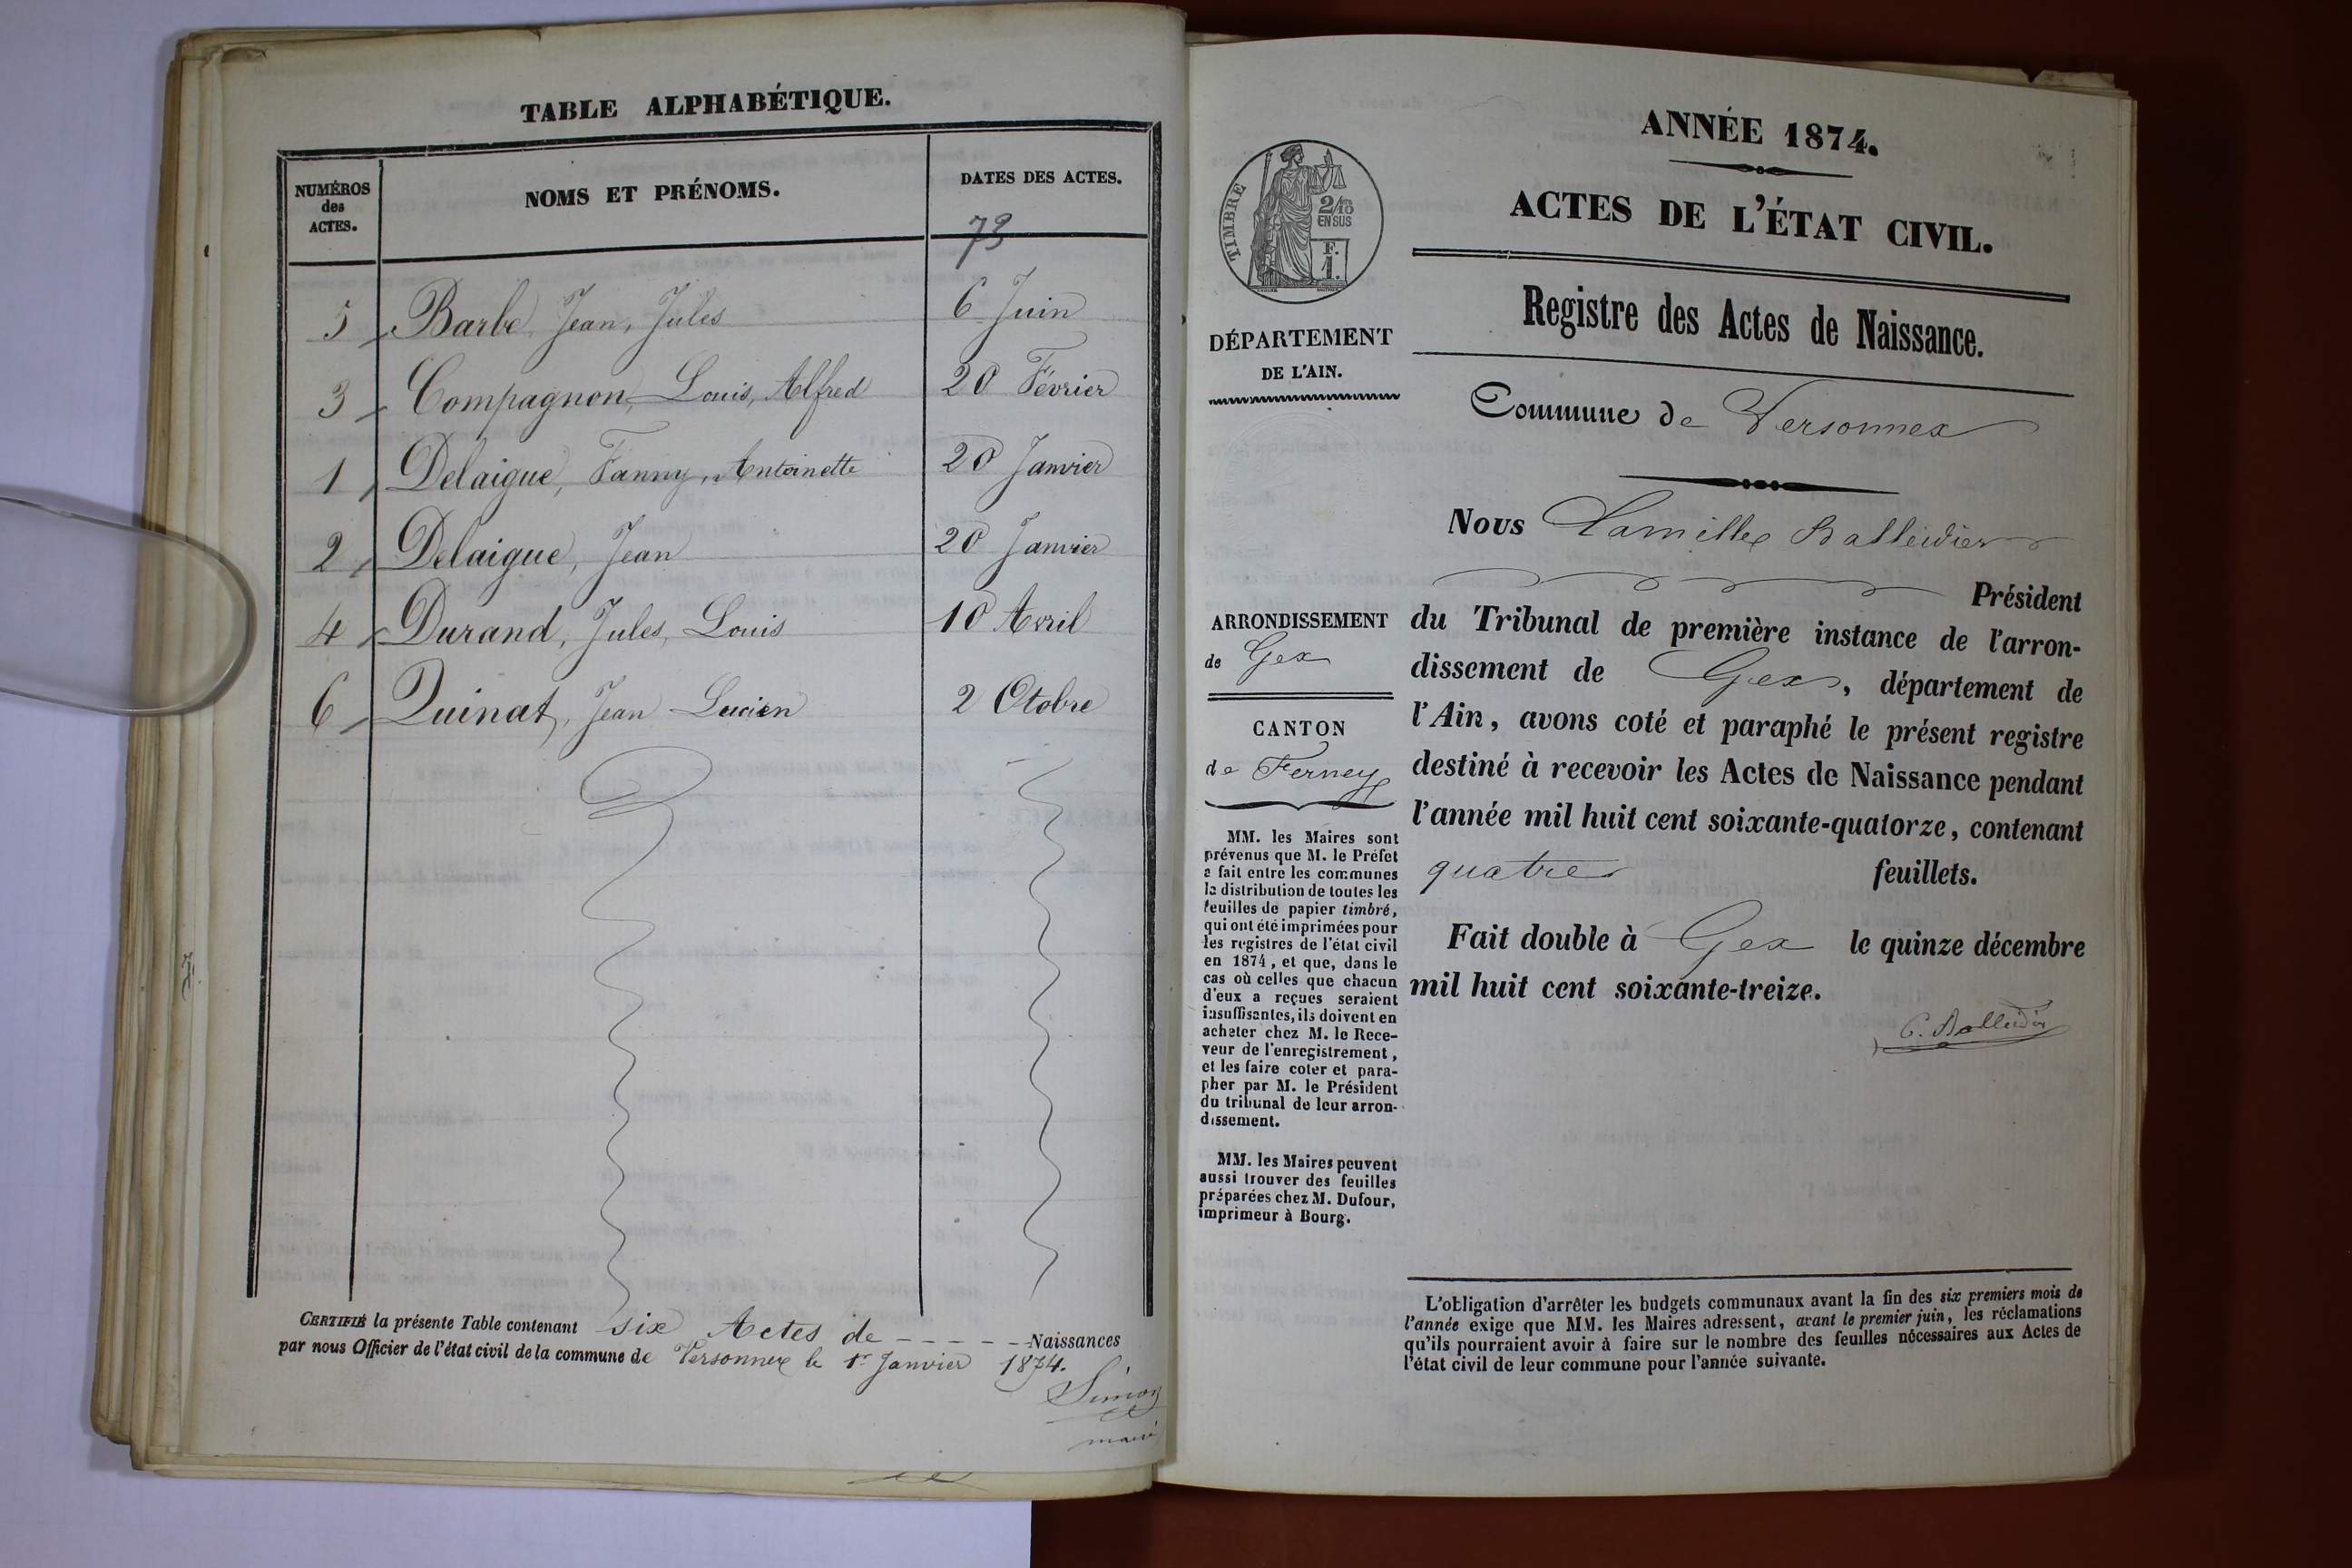 TABLE ALPHABÉTIQUE.
NUMÉROS
des
ACTES.
NOMS ET PRÉNOMS.
DATES DES ACTES.
73
5 Barbe Jean, Jules 6 Juin
3 Compagnon, Louis, Alfred 20 Février
1 Delaigue, Fanny, Antoinette 20 Janvier
2 Delaigue, Jean 20 Janvier
4 Durand, Jules, Louis 10 Avril
6 Quinat, Jean Lucien 2 Otobre
CERTIFIÉ la présente Table contenant six Actes de - - - - - Naissances
par nous Officier de l'état civil de la commune de Versonnex le 1er Janvier 1874.
Simon
maire
ANNÉE 1874.
ACTES DE L'ÉTAT CIVIL.
Registre des Actes de Naissance.
TIMBRE
2/10
EN SUS
F.
1.
DÉPARTEMENT
DE L'AIN.
ARRONDISSEMENT
de Gex
CANTON
de Ferney
MM. les Maires sont
prévenus que M. le Préfet
a fait entre les communes
la distribution de toutes les
feuilles de papier timbré,
qui ont été imprimées pour
les registres de l'état civil
en 1874, et que, dans le
cas où celles que chacun
d'eux a reçues seraient
insuffisantes, ils doivent en
acheter chez M. le Rece-
veur de l'enregistrement,
et les faire coter et para-
pher par M. le Président
du tribunal de leur arron-
dissement.
MM. les Maires peuvent
aussi trouver des feuilles
préparées chez M. Dufour,
imprimeur à Bourg.
Commune de Versonnex
Nous Camille Balleidier
Président
du Tribunal de première instance de l'arron-
dissement de Gex, département de
l'Ain, avons coté et paraphé le présent registre
destiné à recevoir les Actes de Naissance pendant
l'année mil huit cent soixante-quatorze, contenant
quatre feuillets.
Fait double à Gex le quinze décembre
mil huit cent soixante-treize.
C. Balleidier
L'obligation d'arrêter les budgets communaux avant la fin des six premiers mois de
l'année exige que MM. les Maires adressent, avant le premier juin, les réclamations
qu'ils pourraient avoir à faire sur le nombre des feuilles nécessaires aux Actes de
l'état civil de leur commune pour l'année suivante.